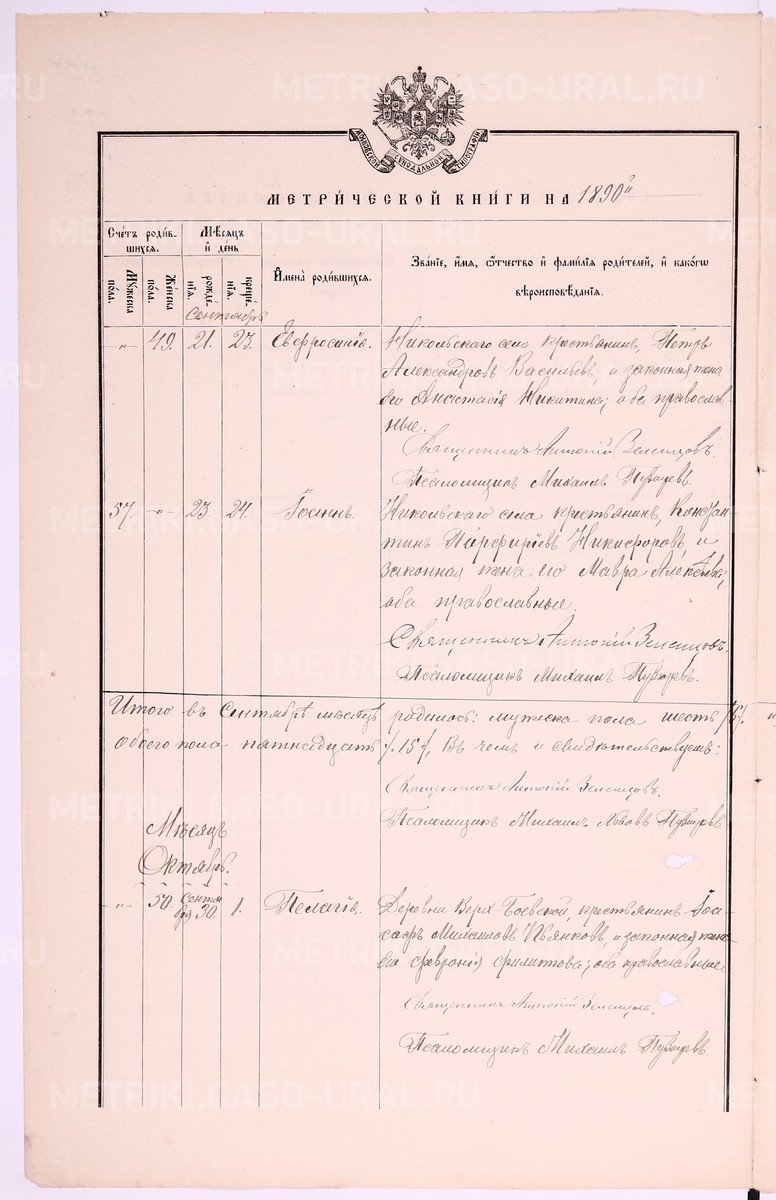 METRIKI.GASO-URAL.RU
МОСКОВСКОЙ СѴНОДАЛЬНОЙ ТИПОГРАФІИ
МЕТРИ́ЧЕСКОЙ КНИ́ГИ НА 1890й
Сче́тъ роди́в-
шихся.
Мѣ́сяцъ
и҆ де́нь
И҆мена̀ роди́вшихся.
Зва́нїе, и҆́мя, ѻ҆́тчество и҆ фами́лїя роди́телей, и҆ како́гѡ
вѣроисповѣ́данїя.
Му́жеска по́ла.
Же́нска по́ла.
рожде́нїя.
креще́нїя.
Сентябрь
„ 49. 21. 23. Евфросинія. Никольскаго села крестьянинъ, Петръ
Александровъ Васильевъ, и законная жена
его Анастасія Никитина; оба православ-
ные.
Священникъ Антоній Земляницовъ.
Псаломщикъ Михаилъ
57. „ 23. 24. Іоаннъ. Никольскаго села крестьянинъ, Констан-
тинъ Порфиріевъ Никифоровъ, и
законная жена его Мавра Алексѣева;
оба православные.
Священникъ Антоній
Псаломщикъ Михаилъ
Итого въ Сентябрѣ мѣсяцѣ родилось: мужеска пола шесть /6/,
обоего пола пятнадцать /.15/, Въ чемъ и свидѣтельствуемъ:
Священникъ Антоній
Псаломщикъ Михаилъ
Мѣсяцъ
Октябрь.
„ 50. Сентя
бря 30. 1. Пелагія. Деревни Верх-Боевской, крестьянинъ Іоа-
сафъ Михаиловъ Пьянковъ, и законная жена
его Февронія Филиппова; оба православные.
Священникъ Антоній
Псаломщикъ Михаилъ